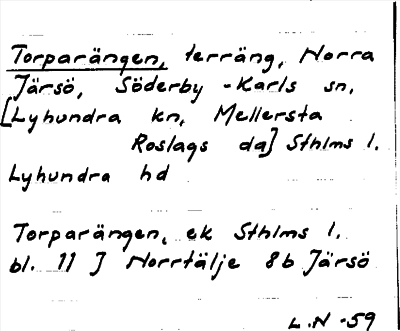 Torparängen, terräng, Norra
Järsö, Söderby-Karls sn,
[Lyhundra kn, Mellersta
Roslags da] Sthlms l.
Lyhundra hd
Torparängen, ek Sthlms l.
bl. 11 J Norrtälje 8b Järsö
L.N -59